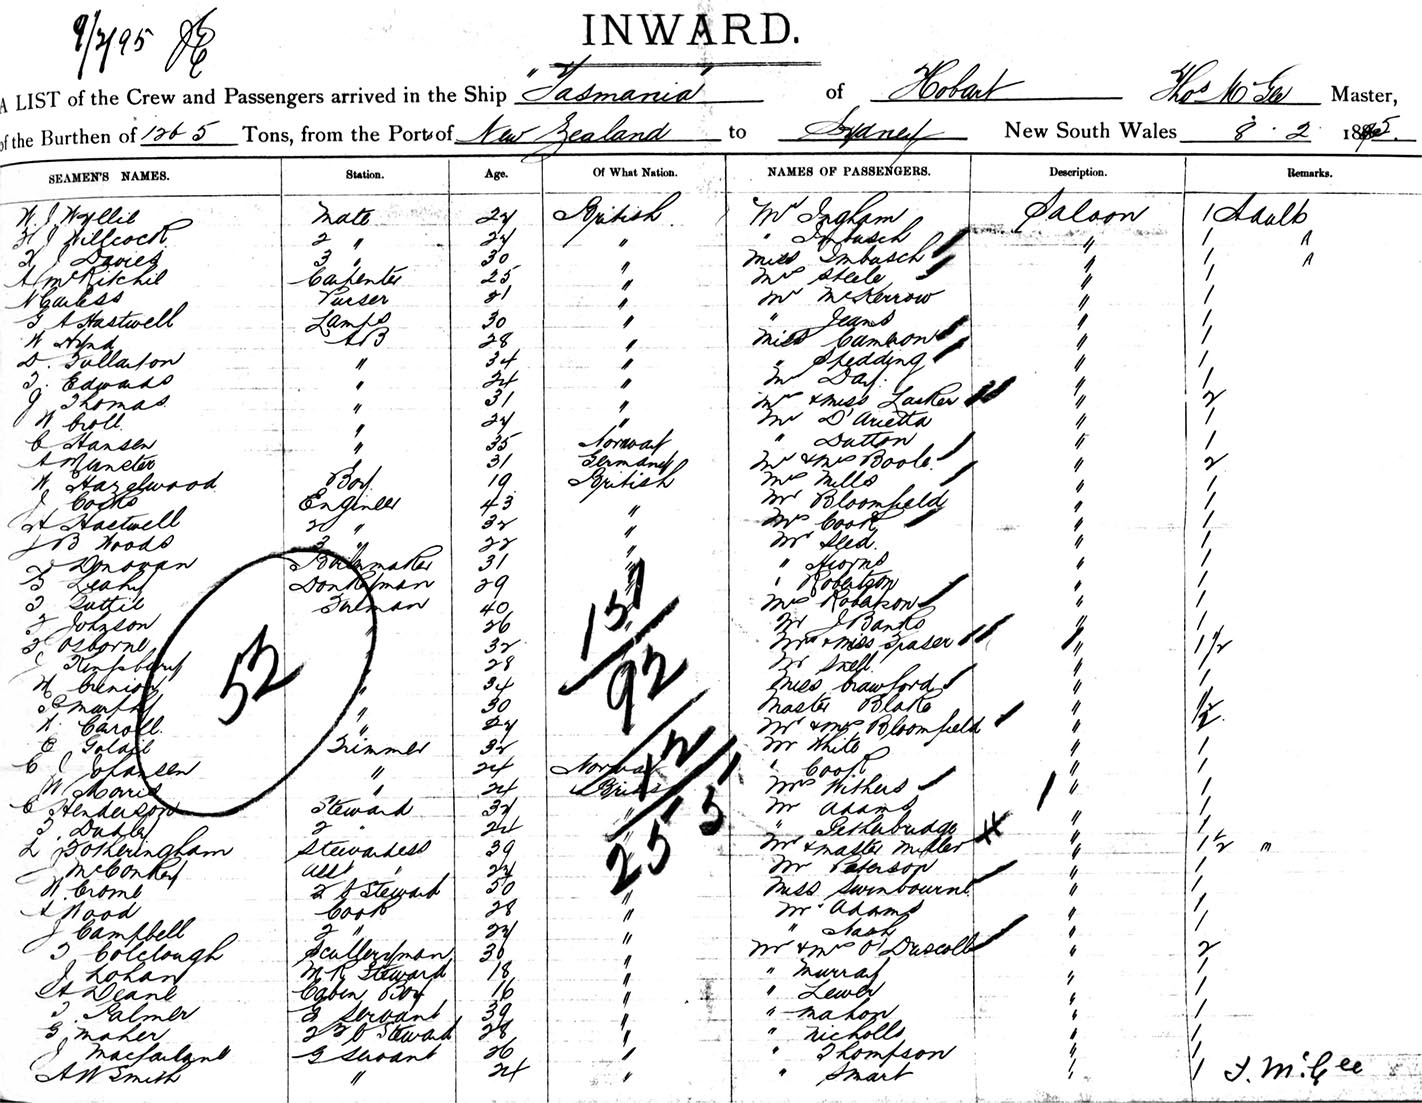 9/2/95
INWARD.
A LIST of the Crew and Passengers arrived in the Ship "Tasmania" of Hobart Thos McGee Master,
of the Burthen of 1265 Tons, from the Port of New Zealand to Sydney New South Wales 8.2 1895.
SEAMEN'S NAMES. Station. Age. Of What Nation. NAMES OF PASSENGERS. Description. Remarks.
W J Wyllie Mate 24 British Mr Ingham Saloon 1 Adult
H J Willcock 2 " 24 " " Imbusch " 1 "
J Davies 3 " 30 " Miss Imbusch " 1 "
A McRitchie Carpenter 25 " Mrs Steele " 1
Purser " Mr McKerrow " 1
G A Hastwell Lamps 30 " " Jeans " 1
W Hynd AB 28 " Miss Cameron " 1
D. Fullarton " 34 " " Spedding " 1
T. Edwards " 24 " Mr Day. " 1
J Thomas. " 31 " Mr & Miss Lasker " 2
W Croll " 24 " Mr D'Arietta " 1
C Hansen " 35 Norway " Dutton " 1
A Munster " 31 Germany Mr & Mrs Boole. " 2
W Hazelwood Boy 19 British Mrs Mills " 1
J Cocks Engineer 43 " Mr Bloomfield " 1
H Hastwell 2 " 32 " Mrs Cook " 1
J B Woods 3 " 22 " Mr Seed. " 1
Donovan Boilermaker 31 " " " 1
Leahy Donkeyman 29 " " Robertson " 1
T Tuttie Fireman 40 " Mrs Robertson " 1
Johnson " 26 " Mr J Banks " 1
Osborne " 32 " Mrs & Miss Fraser " 1½
Kingsbury " 28 " Mr Snell " 1
W " 34 " Miss Crawford " 1
Murphy " 30 " Master Blake " ½
Caroll " 24 " Mr & Mrs Bloomfield " 2
Trimmer 32 " Mr White " 1
C J Johansen " 24 Norway " Cook " 1
W Morris " 24 British Mrs Withers " 1
C Henderson Steward 32 " Mr Adams " 1
2 " 24 " " " 1
L Fotheringham Stewardess 39 " Mr & Master Miller " 1½ "
J McConkey Asst " 24 " Mr Peterson " 1
W. Crome 2 S Steward 50 " Miss Swinbourne " 1
A Wood Cook 28 " Mr Adams " 1
J Campbell 2 " 24 " " Nash " 1
T Colclough Scullery man 30 " Mr & Mrs O'Driscoll " 2
J. Lohan M R Steward 18 " " Murray " 1
A Deane Cabin Boy 16 " " Lewer " 1
T. Palmer G Servant 39 " " Mahon " 1
G Maher 2 S Steward 28 " " Nicholls " 1
J Macfarlane G Servant 26 " " Thompson " 1
A W Smith " 24 " " Smart " 1
T. McGee
52
157
92
2551